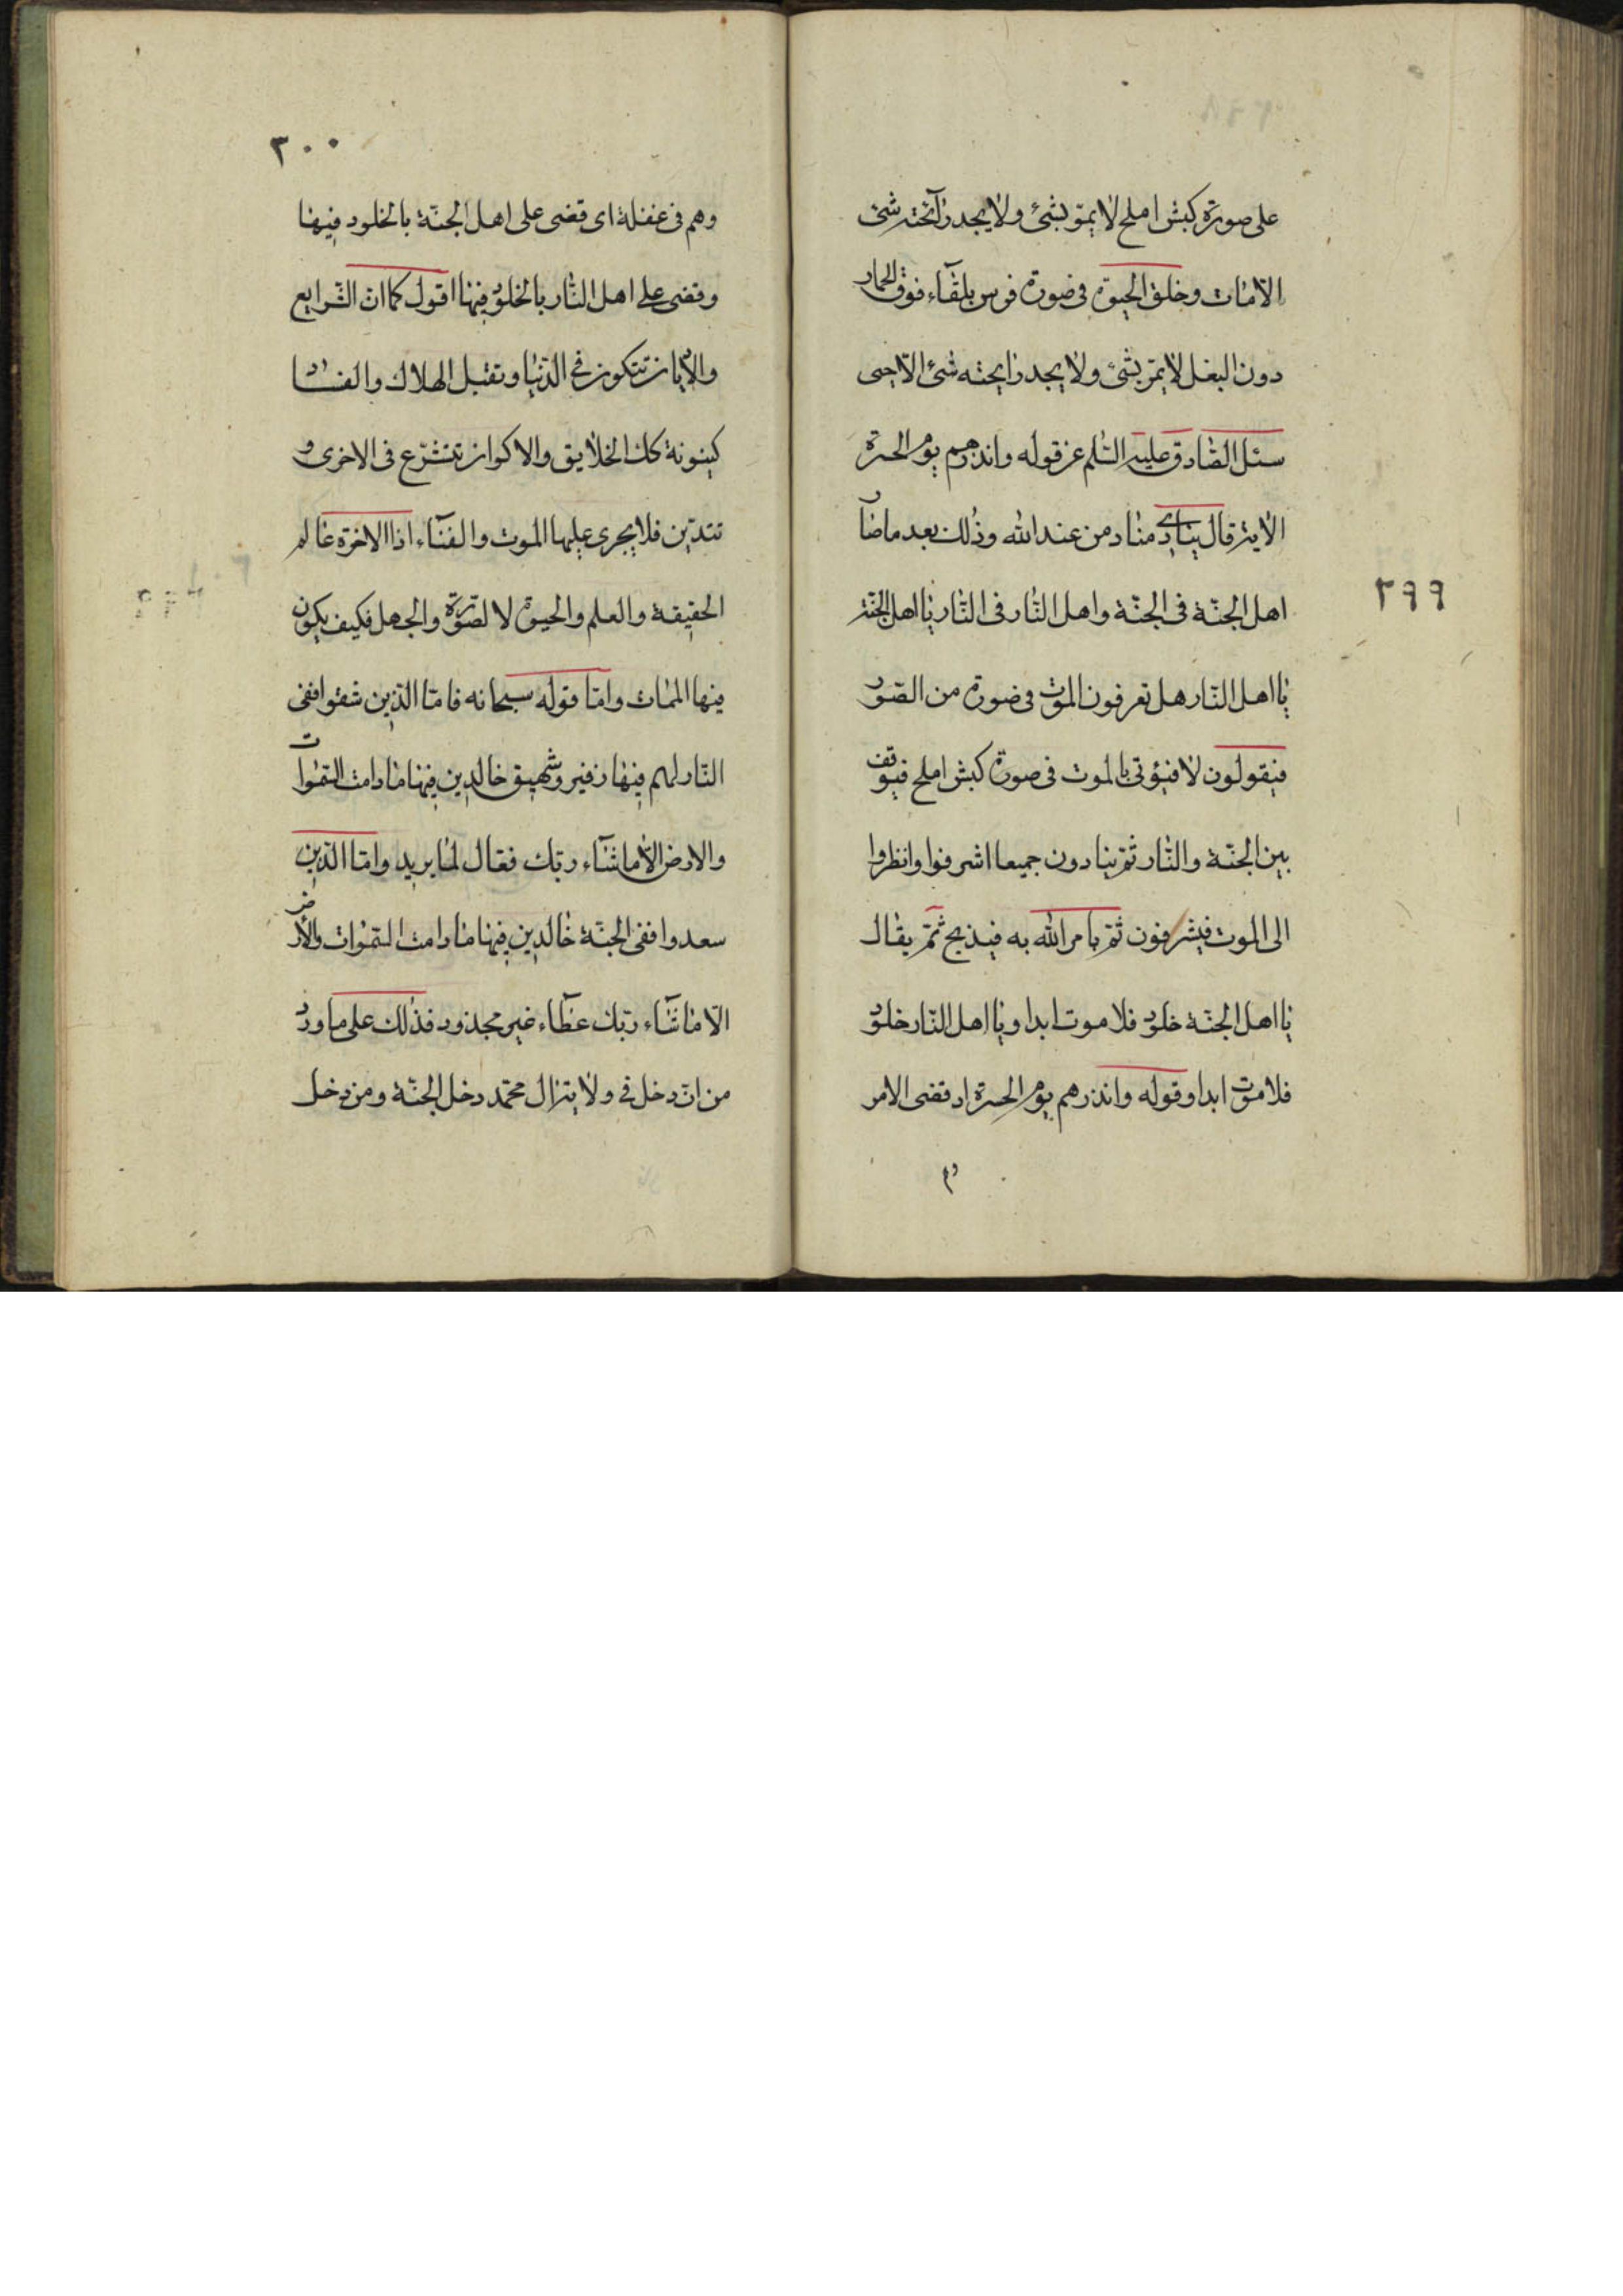 ٢٩٩
على صورة كبش املح لا يمرّ بشئ ولا يجد رآئحته شئ
الّا مات وخلق الحيوة فى صورة فرس بلقآء فوق الحمار
دون البغل لا يمرّ بشئ ولا يجد رايحته شئ الّا حيى
سئل الصّادق عليه السّلم عن قوله وانذرهم يوم الحسرة
الاية قال ينادى مناد من عند الله وذلك بعد ما صار
اهل الجنّة فى الجنّة واهل النّار فى النّار يا اهل الجنّة
يا اهل النّار هل تعرفون الموت فى صورة من الصّور
فيقولون لا فيؤتى بالموت فى صورة كبش املح فيوقف
بين الجنّة والنّار ثمّ ينادون جميعا اشرفوا وانظروا
الى الموت فيشرفون ثمّ يامر الله به فيذبح ثمّ يقال
يا اهل الجنّة خلود فلا موت ابدا ويا اهل النّار خلود
فلا موت ابدا وقوله وانذرهم يوم الحسرة اذ قضى الامر
وهم
٣٠٠
وهم فى غفلة اى قضى على اهل الجنّة بالخلود فيها
وقضى على اهل النّار بالخلود فيها اقول كما انّ الشّرايع
والاديان تتكون فى الدّنيا وتقبل الهلاك والفساد
كينونة كك الخلايق والاكوان تتشرّع فى الاخرى و
تتديّن فلا يجرى عليها الموت والفنآء اذ الاخرة عالم
الحقيقة والعلم والحيوة لا الصّورة والجهل فكيف يكون
فيها الممات وامّا قوله سبحانه فامّا الّذين شقوا ففى
النّار لهم فيها زفير وشهيق خالدين فيها ما دامت السّموات
والارض الّا ما شآء ربّك فعّال لما يريد وامّا الّذين
سعدوا ففى الجنّة خالدين فيها ما دامت السّموات والأرض
الّا ما شآء ربّك عطآء غير مجذوذ فذلك على ما ورد
من انّ دخل فى ولاية ال محمّد دخل الجنّة ومن دخل